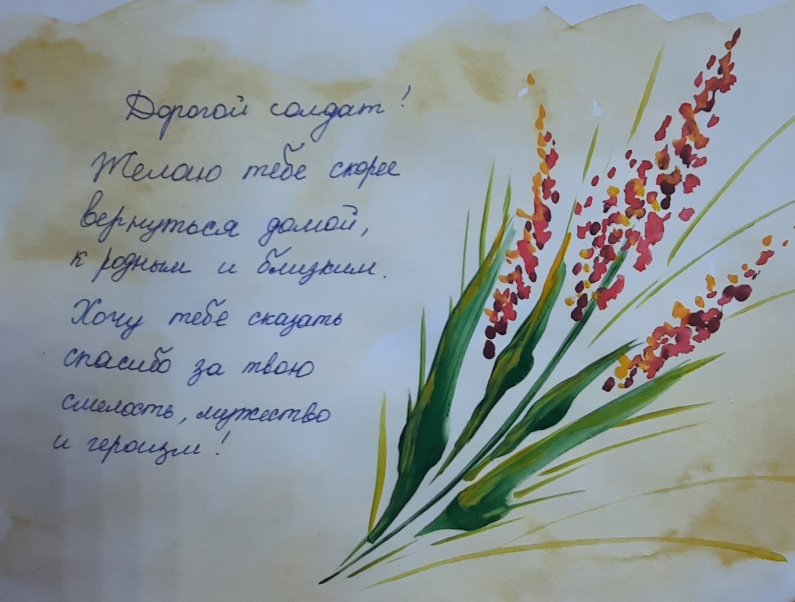 Дорогой солдат!
Желаю тебе скорее
вернуться домой,
к родным и близким.
Хочу тебе сказать
спасибо за твою
смелость, мужество
и героизм!